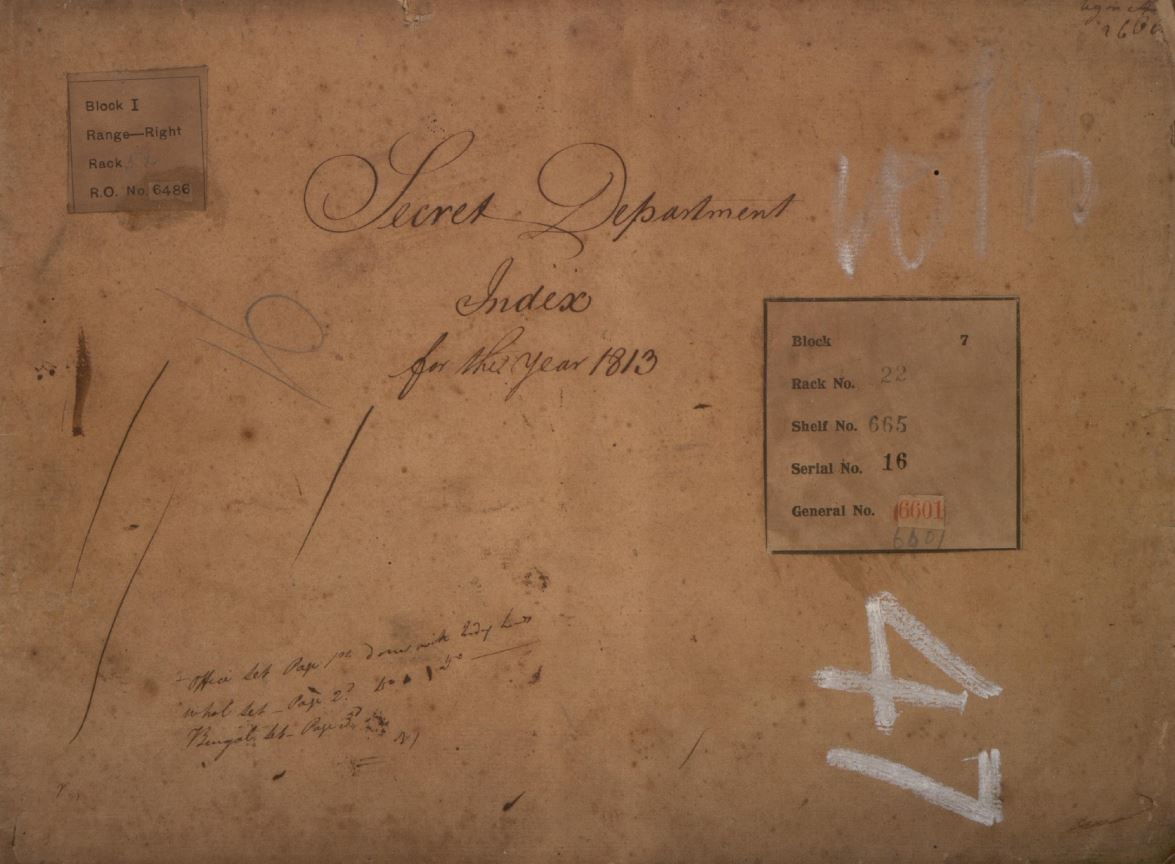 Block I
Range—Right
Rack
R.O. No. 6486
Secret Department
Index
for the Year 1813
Block 7
Rack No. 22
Shelf No. 665
Serial No. 16
General No. 6601
6601
47
Office Set Page 1st
Set Page 2d
Bengal Set Page 3d